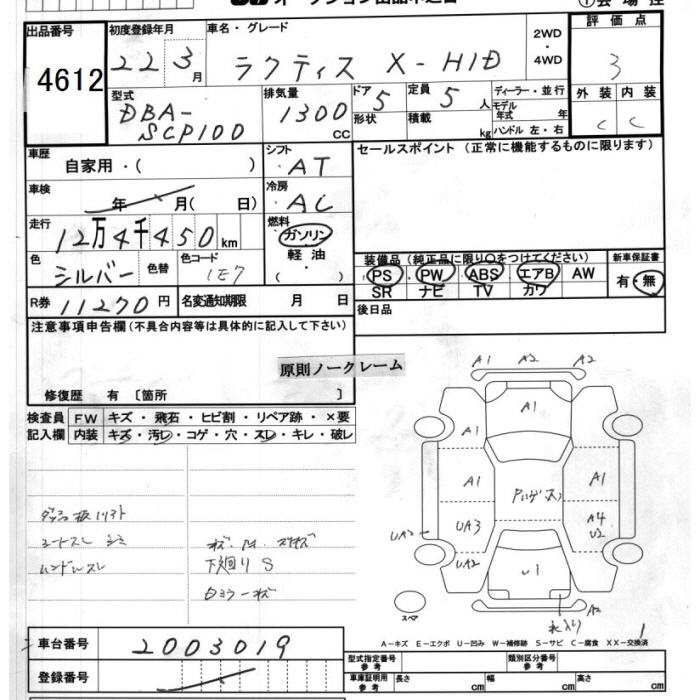 出品番号
4612
初度登録年月
22 3月
車名・グレード
ラクティス X-HID
2WD
・
4WD
評価点
3
型式
DBA-
SCP100
排気量
1300
CC
ドア
5
形状
定員
5人
積載
kg
ディーラー・並行
モデル
年式 年
ハンドル 左・右
外装 内装
C C
車歴
自家用・( )
シフト
・AT
セールスポイント (正常に機能するものに限ります)
車検
年 月( 日)
冷房
・AC
走行
12万4千450km
燃料
ガソリン
軽油
・( )
色
シルバー
色替
色コード
1E7
装備品 (純正品に限り○をつけてください)
PS・PW・ABS・エアB・AW
SR ナビ TV カワ
新車保証書
有・無
R券 11270円
名変通知期限 月 日
後日品
注意事項申告欄(不具合内容等は具体的に記入して下さい)
原則ノークレーム
修復歴 有 〔箇所 〕
検査員
記入欄
FW キズ・飛石・ヒビ割・リペア跡・×要
内装 キズ・汚レ・コゲ・穴・スレ・キレ・破レ
ハンドルスレ
下廻りS
A1 A2 A2
A1 A1
A1 A1
UA3 UA3 A4
U2
UA2
U1
A2
スペア
A-キズ E-エクボ U-凹み W-補修跡 S-サビ C-腐食 XX-交換済
車台番号
2003019
登録番号
型式指定番号
参考
類別区分番号
参考
車庫証明用
参考
長さ cm 幅 cm 高さ cm